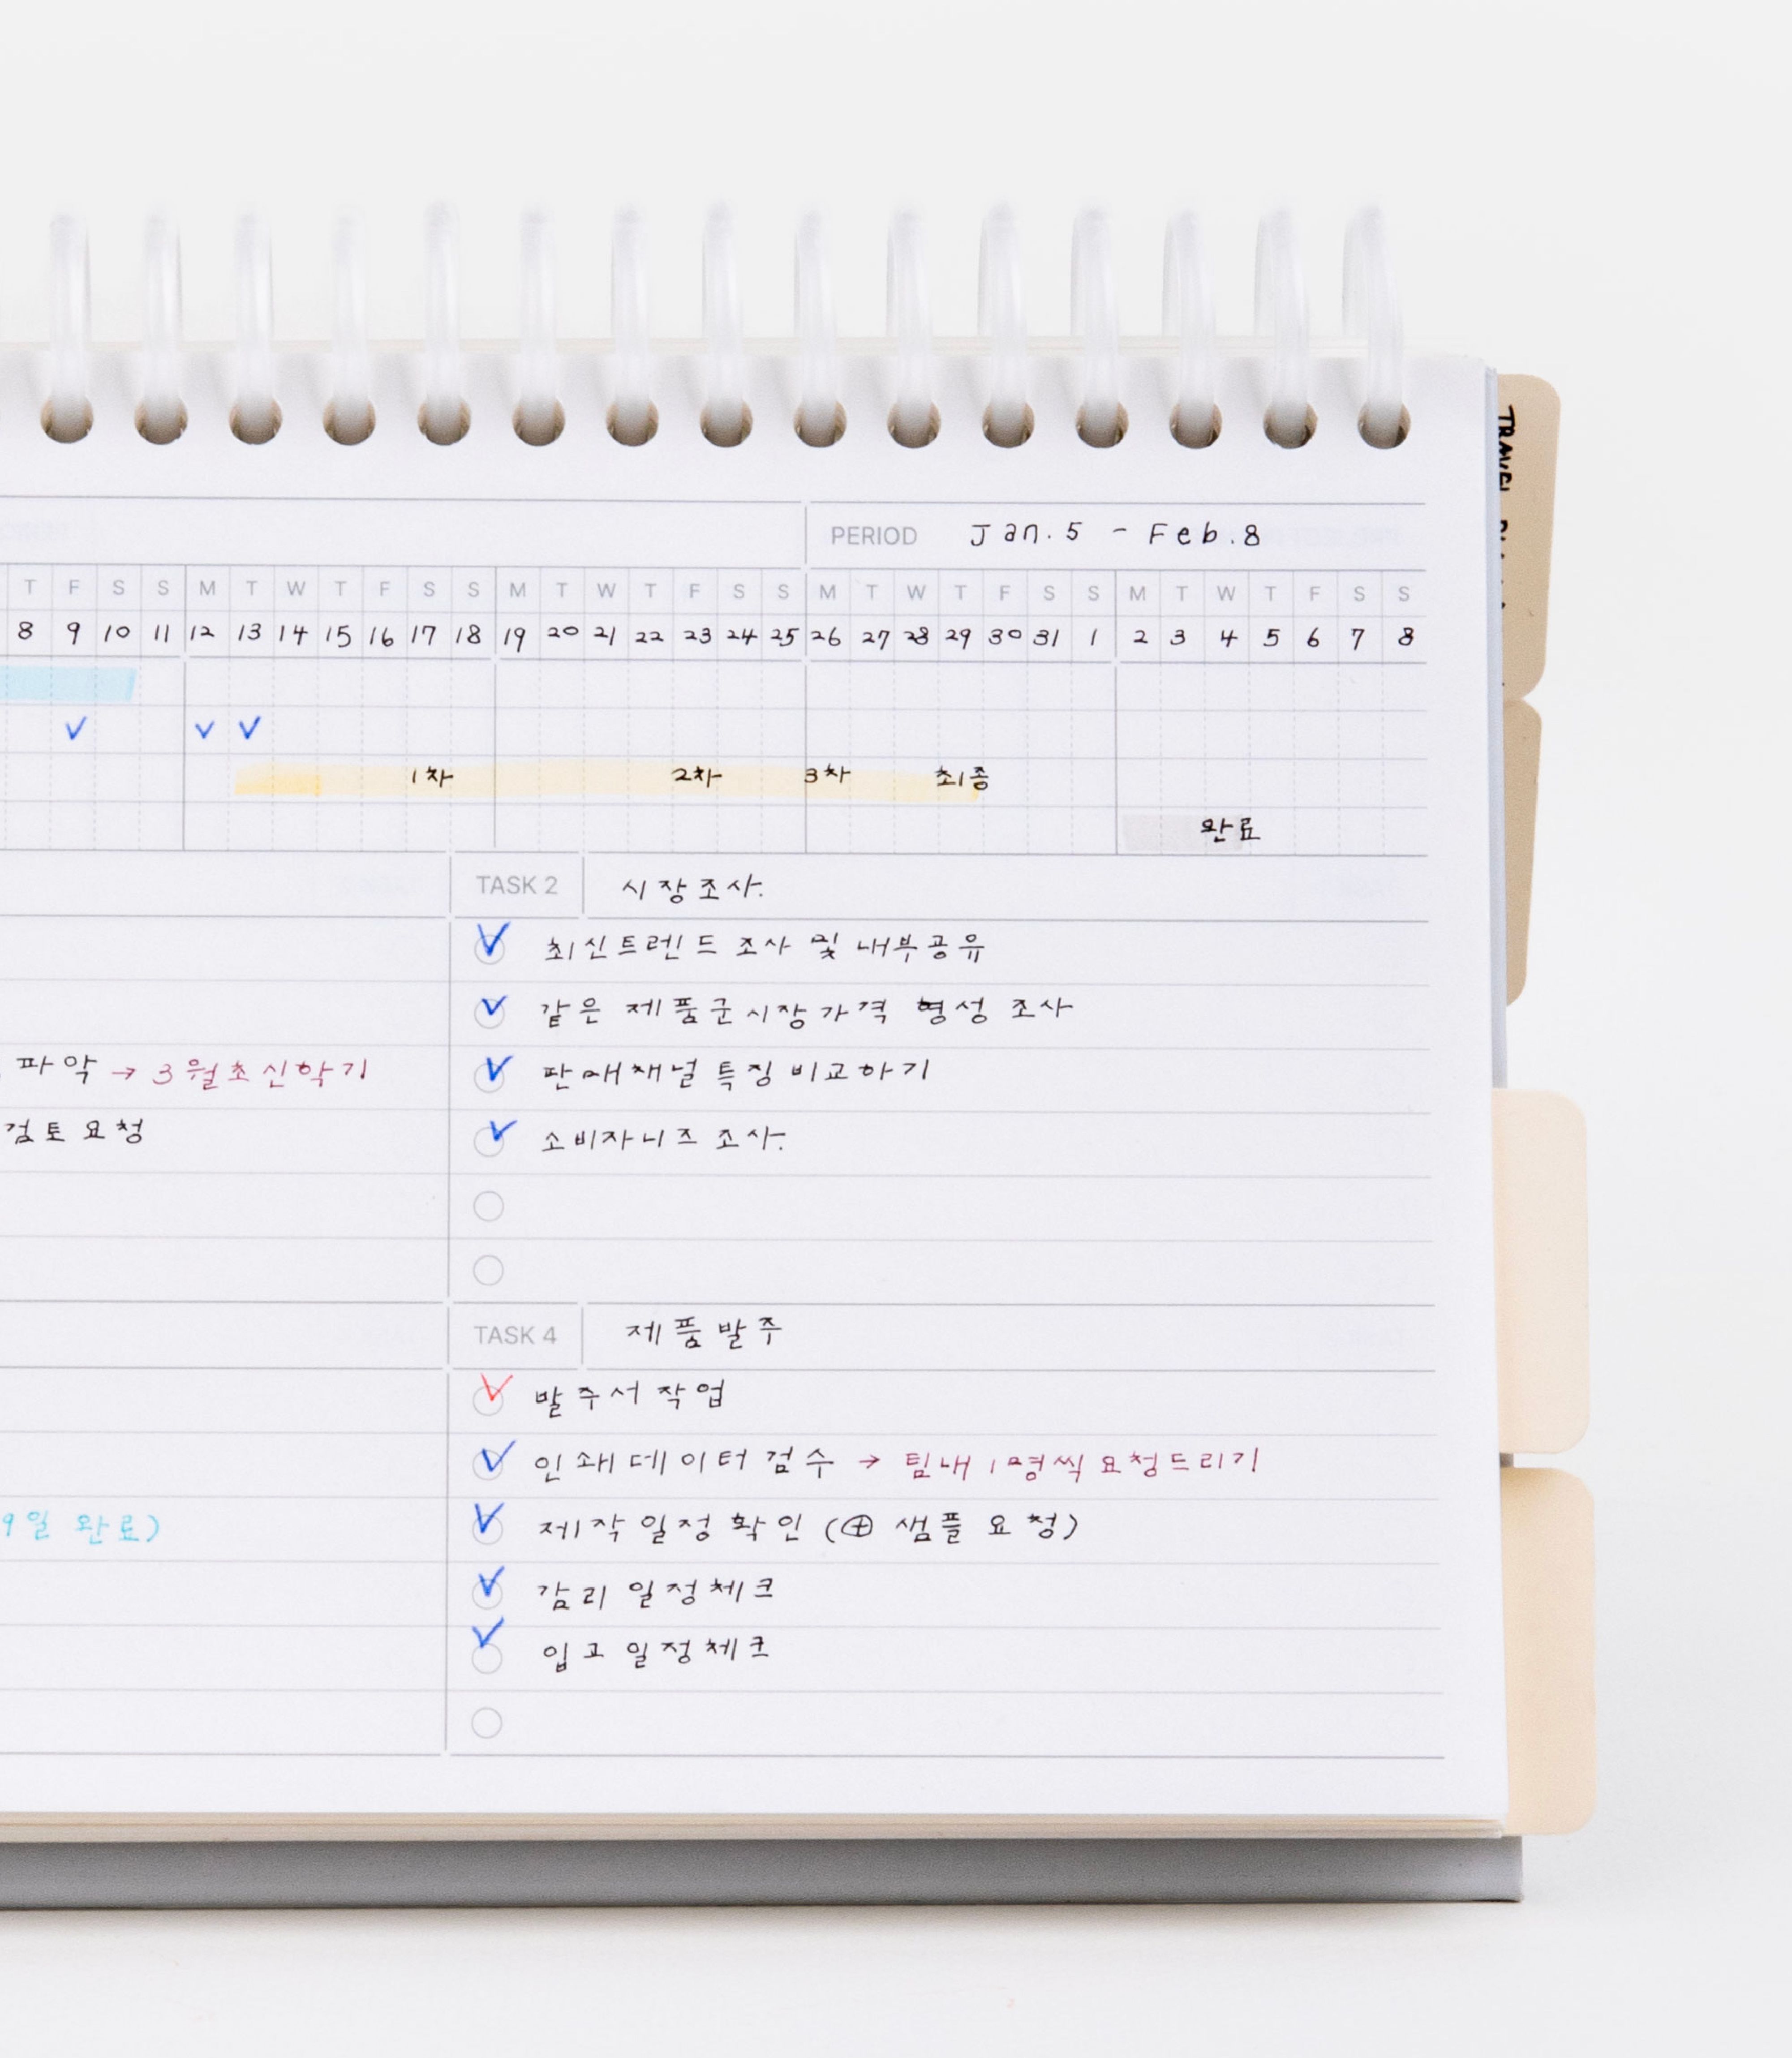 PERIOD Jan. 5 - Feb. 8
T F S S M T W T F S S M T W T F S S M T W T F S S M T W T F S S
8 9 10 11 12 13 14 15 16 17 18 19 20 21 22 23 24 25 26 27 28 29 30 31 1 2 3 4 5 6 7 8
1차 2차 3차 최종
완료
TASK 2 시장조사.
최신트렌드 조사 및 내부공유
같은 제품군 시장가격 형성 조사
파악 → 3월초 신학기
판매채널 특징 비교하기
검토 요청
소비자니즈 조사.
TASK 4 제품발주
발주서 작업
인쇄데이터 검수 → 팀내 1명씩 요청드리기
9일 완료)
제작일정 확인 (⊕ 샘플 요청)
감리 일정체크
입고 일정체크
TRAVEL